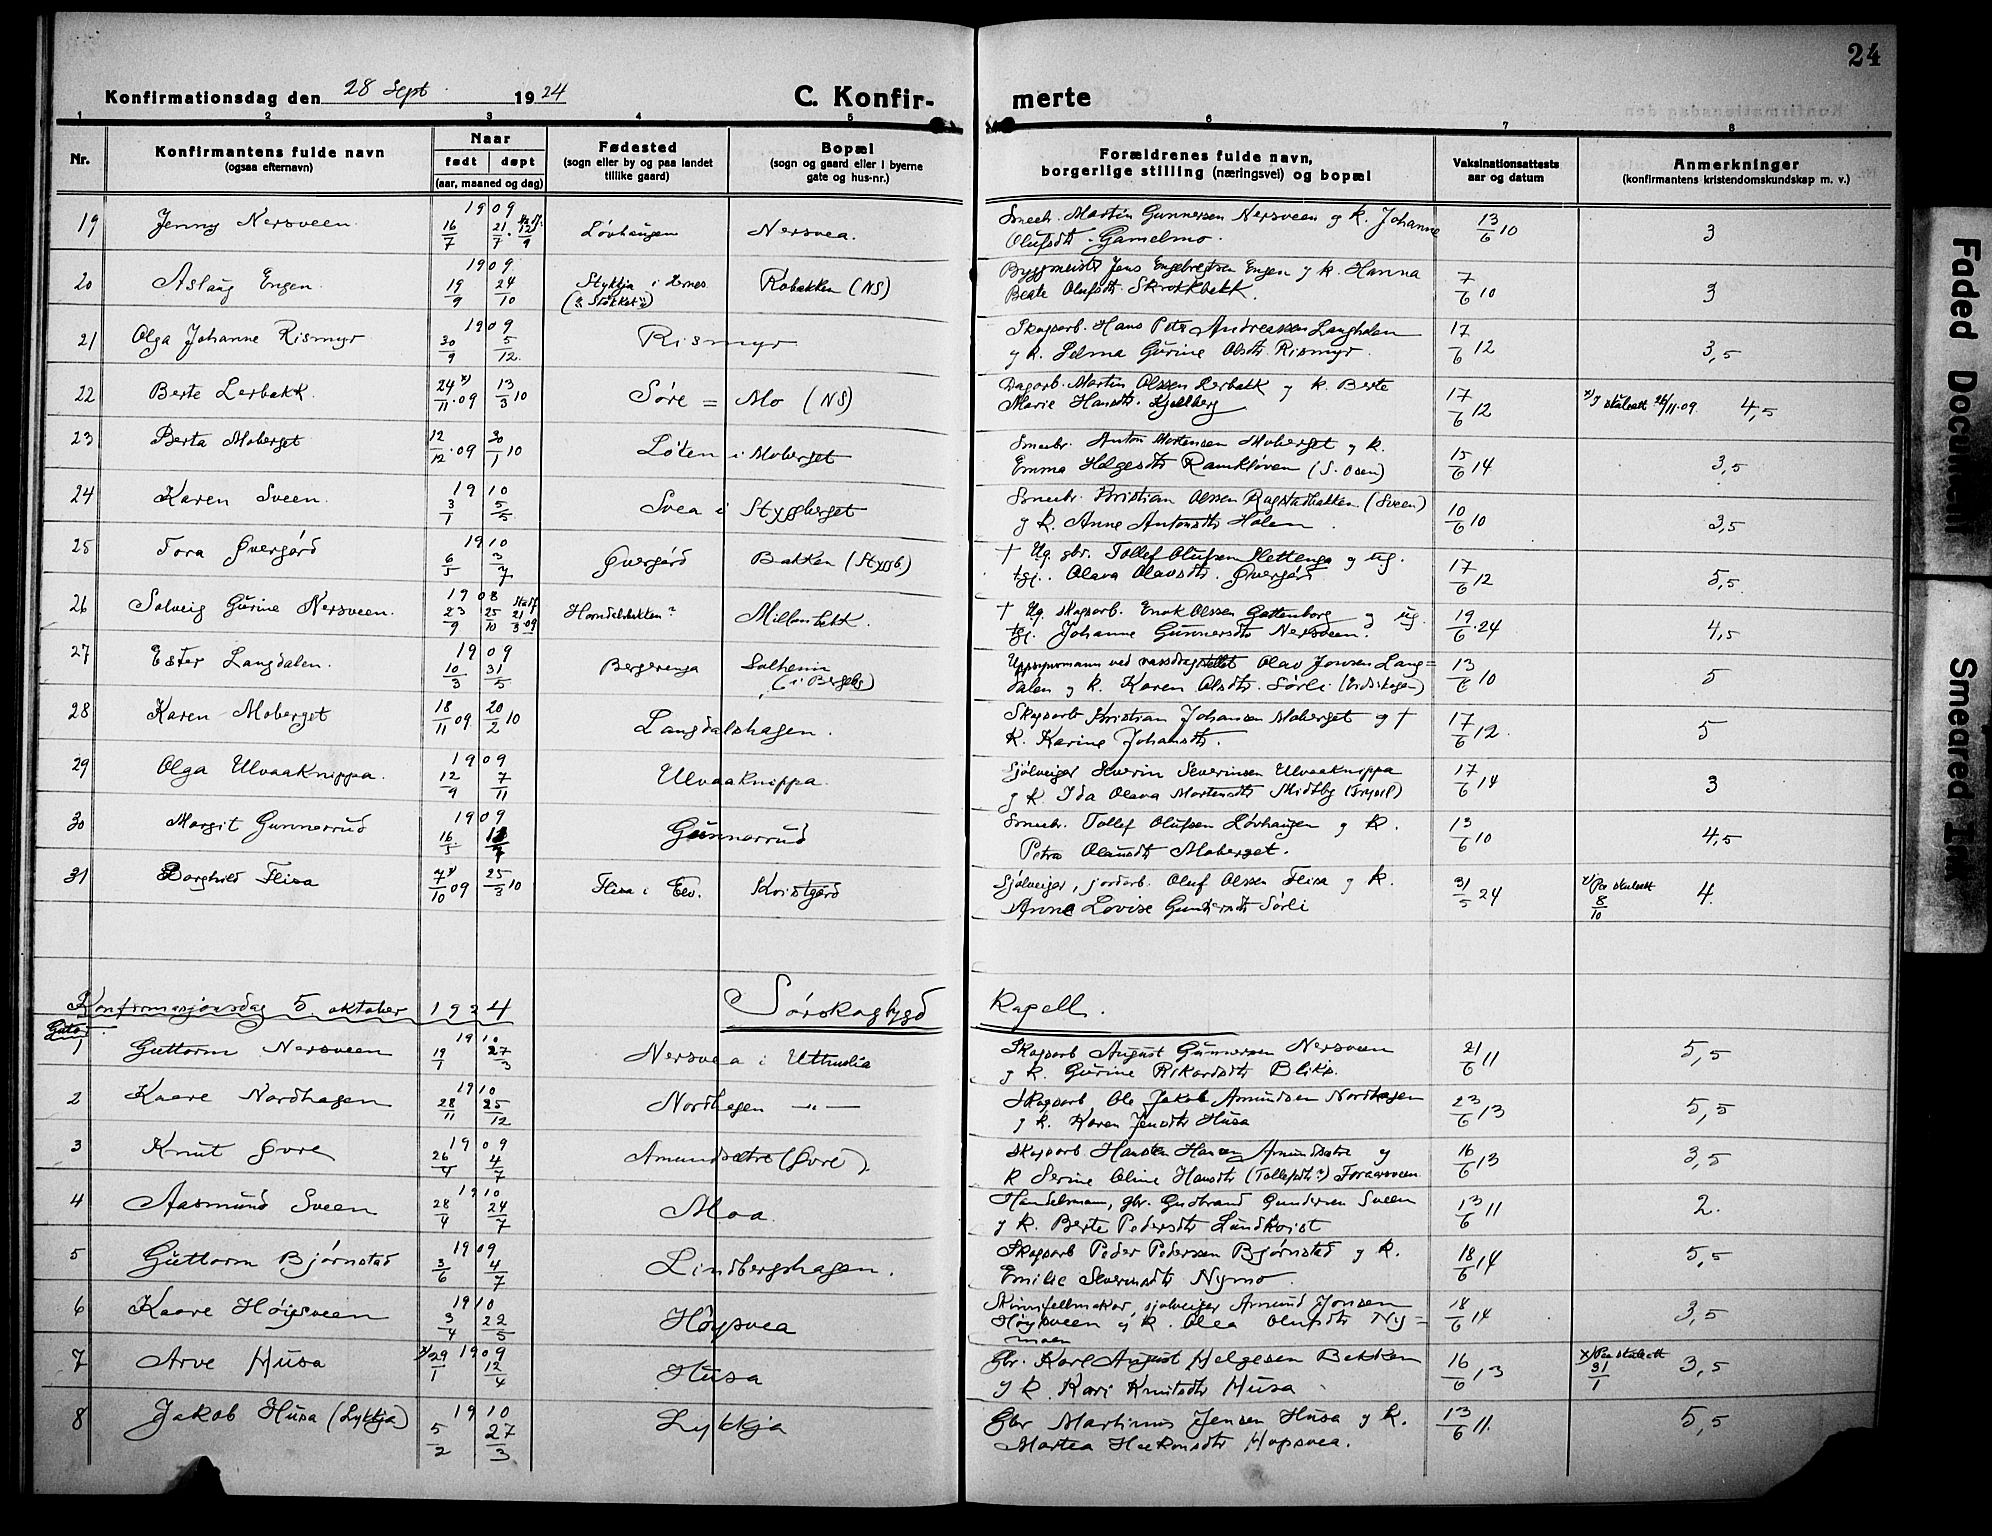 24
Konfirmationsdag den 28 Sept 1924
C. Konfirmerte
1 2 3 4 5 6 7 8
Nr. Konfirmantens fulde navn (ogsaa efternavn) Naar født døpt (aar, maaned og dag) Fødested (sogn eller by og paa landet tillike gaard) Bopæl (sogn og gaard eller i byerne gate og hus-nr.) Forældrenes fulde navn, borgerlige stilling (næringsvei) og bopæl Vaksinationsattests aar og datum Anmerkninger (konfirmantens kristendomskundskap m. v.)
19 Jenny Nersveen 1909 16/7 21/7 12/9 Løvhaugen Nersvea. Martin Gunnersen Nersveen g k. Johanne
Olufsdtr. Gamelmo. 13/6 10 3
20 Aslaug Engen. 1909 19/9 24/10 Stykkja i Hernes Robakken (NS) Byggmeister Jens Engebregtsen Engen g k. Hanna
Beate Olufsdtr. Skrokkbekk. 7/6 10 3
21 Olga Johanne Rismyr 1909 30/9 5/12 Rismyr Skogsarb. Hans Peter Andreassen Langholen
g k. Selma Gurine Olsdtr. Rismyr. 17/6 12 3,5
22 Berte Lerbekk. 24x)/11 09 13/3 10 Søre = Mo (NS) Dagarb. Martin Olssen Lerbekk g k. Berte
Marie Hansdtr. Kjellberg 17/6 12 x) I skuleatt 26/11 09. 4,5
23 Berta Moberget 12/12 09 30/1 10 Løten i Moberget Anton Mortensen Moberget g k.
Emma Helgesdtr. Ramkløven (S. Osen) 15/6 14 3,5
24 Karen Sveen. 1910 3/1 5/5 Svea i Styggberget Kristian Olssen Rogstadbakken (Sveen)
g k. Anne Antonsdtr. Holen. 10/6 10 3,5
25 Tora Øvergård 1910 6/5 3/7 Øvergård Bakken (Styggb) † Ug. gbr. Tollef Olufsen Slettenga og ug.
tgj. Olava Olavsdtr. Øvergård 17/6 12 5,5
26 Solveig Gurine Nersveen. 1908 23/9 25/10 21/3 09 Millombekk. † Ug. skogsarb. Enok Olssen Gottenborg g ug.
tgj. Johanne Gunnersdtr. Nersveen. 19/6 24 4,5
27 Ester Langdalen. 1909 10/3 31/5 Bergerenga Solheim
(i Bergeby) Uppsynsmann ved vassdragstellet Olav Jonsen Lang=
dalen g k. Karen Olsdtr. Sørli 13/6 10 5
28 Karen Moberget 18/11 09 20/2 10 Langdalshagen. Skogsarb Kristian Johansen Moberget og †
k. Karine Johansdtr. 17/6 12. 5
29 Olga Ulvaaknippa. 1909 12/9 7/11 Ulvaaknippa. Sjølveiger Severin Severinsen Ulvaaknippa
g k Ida Olava Mortensdtr Midtby (Trysil) 17/6 14 3
30 Margit Gunnerrud 1909 16/5 Gunnerrud Tollef Olufsen Løvhaugen g k.
Petra Olausdtr Moberget. 13/6 10 4,5
31 Borghild Flisa 7x)/10 09 25/3 10 Flisa i Elv. Kvistgård Sjølveiger, jordarb. Oluf Olssen Flisa g k.
Anne Lovise Gundersdtr Sørli 31/5 24 x) Paa skuleatt 8/10 4.
Konfirmasjonsdag 5. oktober 1924 Sørskogbygd Kapell.
Guto:
1 Guttorm Nersveen 1910 19/1 27/3 Nersvea i Uthuslia Skogsarb August Gunnersen Nersveen
g k. Gurine Rikardsdtr Bliks. 21/6 11 5,5
2 Kaare Nordhagen 1910 28/11 25/12 Nordhagen —"— Skogsarb Ole Jakob Amundsen Nordhagen
g k. Karen Jensdtr Husa 23/6 13 5,5
3 Knut Øvre 1909 26/4 4/7 Amundsætre (Øvre) Skogsarb Hansten Hansen Amundsætre g
k Serine Oline Hansdtr (Tollefsdtr?) Foraarsveen 16/6 13 3,5
4 Aasmund Sveen 1910 28/4 24/7 Moa Handelsmann, gbr. Gudbrand Gundersen Sveen
g k. Berte Pedersdtr Lundkvist 13/6 11 2.
5 Guttorm Bjørnstad 1909 3/6 4/7 Lindbergshagen. Skogsarb Peder Pedersen Bjørnstad g k.
Emilie Severinsdtr Nymo. 18/6 14 5,5
6 Kaare Høigsveen 1910 3/4 22/5 Høgsvea Skinnfellmakar, sjølveiger Amund Jonsen
Høgsveen g k. Olea Olufsdtr Ny=
moen 18/6 14 3,5
7 Arve Husa 1909 x) 29/1 12/4 Husa Gbr. Karl August Helgesen Bekken
g k. Kari Knutsdtr Husa 16/6 13 x) Paa skuleatt 31/1 3,5
8 Jakob Husa (Lykkja) 1910 5/2 27/3 Lykkja Gbr Martinus Jensen Husa g k.
Martea Haakonsdtr Hopsvea. 13/6 11. 5,5
Faded Document
Smeared Ink